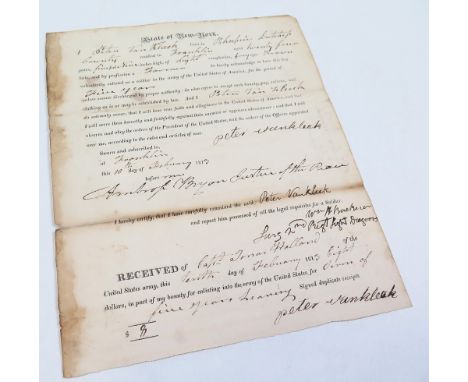 State of New-York.
I Peter Van Kleek born in Rhynbec Dutchess
County resident in Franklin aged twenty four
years, five feet nine high, of light complexion, eyes brown
hair, and by profession a Farmer do hereby acknowledge to have this day
voluntarily enlisted as a soldier in the army of the United States of America, for the period of
five years
unless sooner discharged by proper authority: do also agree to accept such bounty, pay, rations, and
clothing as is or may be established by law. And I Peter Van Kleek
do solemnly swear, that I will bear true faith and allegiance to the United States of America, and that
I will serve them honestly and faithfully against their enemies or opposers whomsoever: and that I will
observe and obey the orders of the President of the United States, and the orders of the Officers appointed
over me, according to the rules and articles of war.
peter vankleek
Sworn and subscribed to,
at Franklin
this 10th day of February 1813
before me
Ambrose Bryan Justice of the Peace
I hereby certify, that I have carefully examined the said Peter Vankleek
and report him possessed of all the legal requisites for a Soldier.
Surg 2nd Regt Light Dragoons
RECEIVED of Capt Jonas Holland of the
United States army, this tenth day of February 1813 eight
dollars, in part of my bounty for enlisting into the army of the United States for term of
five years
Signed duplicate receipts.
$ 8
peter vankleek